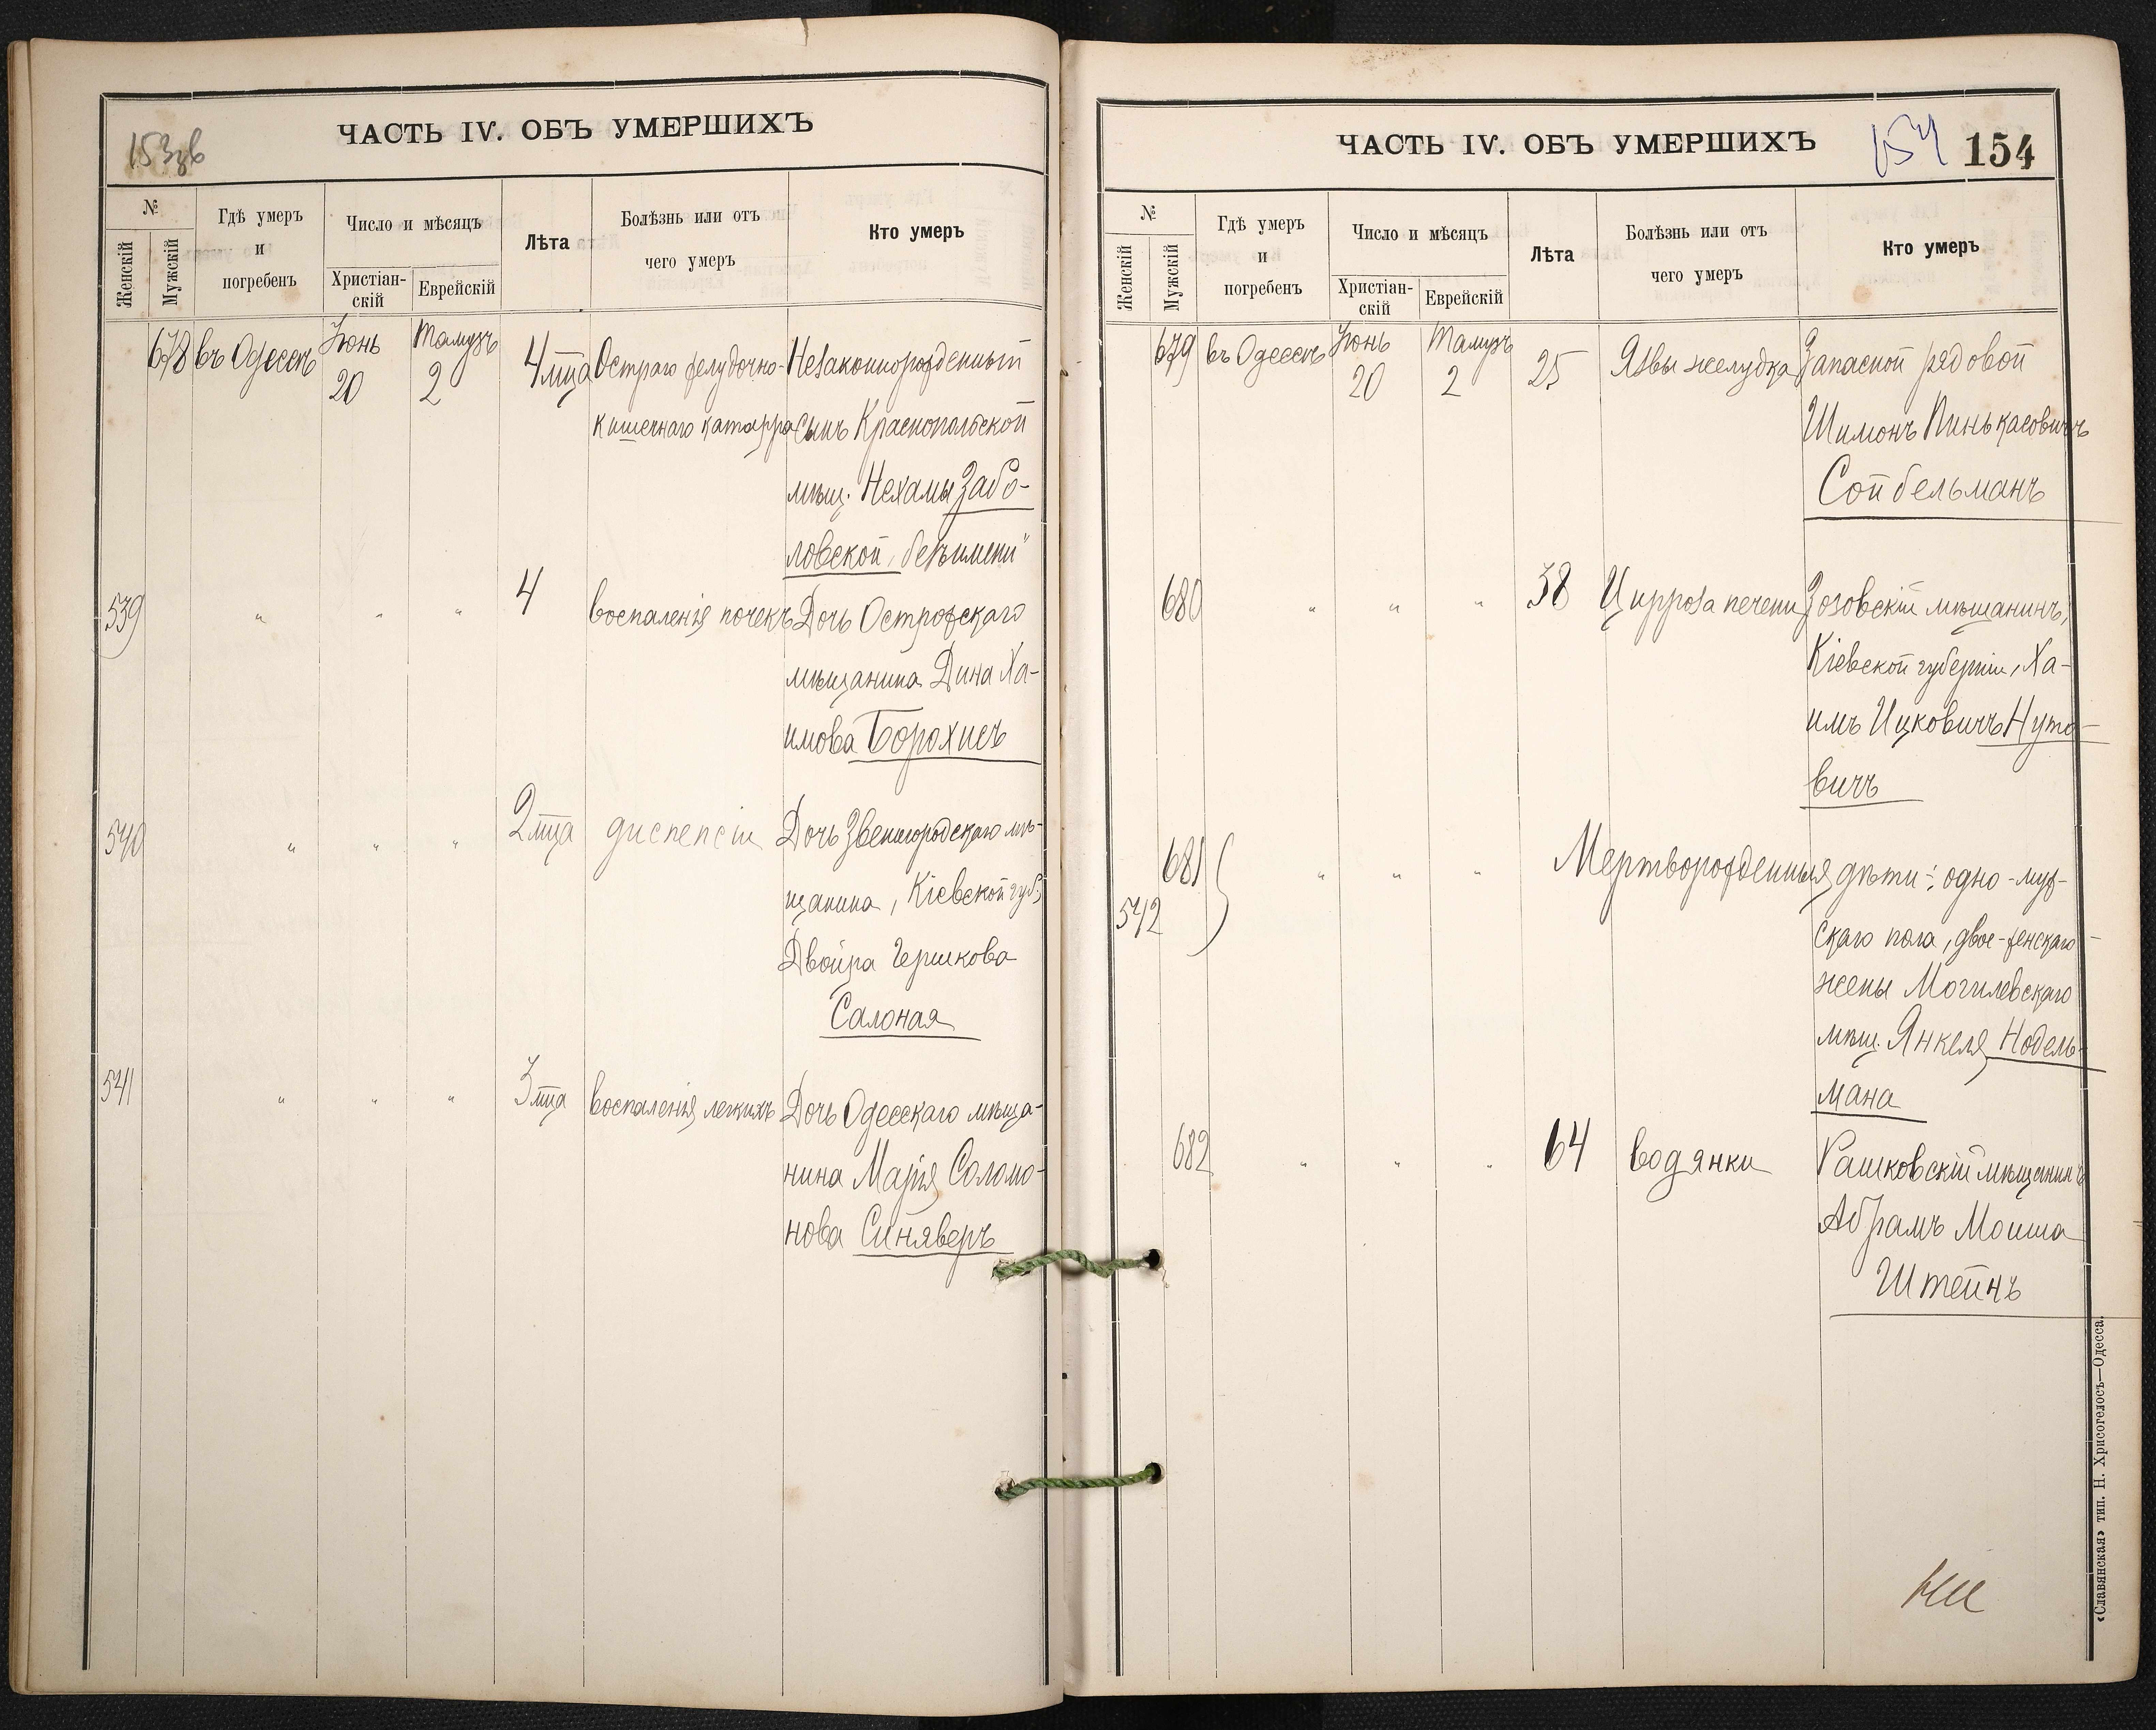 153зв
ЧАСТЬ IV. ОБЪ УМЕРШИХЪ
№
Женскій
Мужскій
Гдѣ умеръ
и
погребенъ
Число и мѣсяцъ
Христіан-
скій
Еврейскій
Лѣта
Болѣзнь или отъ
чего умеръ
Кто умеръ
678 въ Одессѣ Іюнь 20 Тамузъ 2 4 мца Остраго желудочно- Незаконнорожденный
кишечнаго катарра сынъ Краснопольской
мѣщ. Нехамы Забо-
ловской, безъ имени"
539 " " " 4 воспаленія почекъ Дочь Острожскаго
мѣщанина Дина Ха-
имова Борохисъ
540 " " " 2 мца диспепсіи Дочь Звенигородскаго мѣ-
щанина, Кіевской губ.,
Двойра Гершкова
Салоная
541 " " " 3 мца воспаленія легкихъ Дочь Одесскаго мѣща-
нина Марія Соломо-
нова Синяверъ
ЧАСТЬ IV. ОБЪ УМЕРШИХЪ
154 154
№
Женскій
Мужскій
Гдѣ умеръ
и
погребенъ
Число и мѣсяцъ
Христіан-
скій
Еврейскій
Лѣта
Болѣзнь или отъ
чего умеръ
Кто умеръ
679 въ Одессѣ Іюнь 20 Тамузъ 2 25 Язвы желудка Запасной рядовой
Шимонъ Пинькасовичъ
Сойбельманъ
680 " " " 38 Цирроза печени Зозовскій мѣщанинъ,
Кіевской губерніи, Ха-
имъ Ицковичъ Нуто-
вичъ
681 " " " Мертворожденныя дѣти: одно-муж-
542 скаго пола, двое-женскаго-
жены Могилевскаго
мѣщ. Янкеля Нодель-
мана
682 " " " 64 водянки Рашковскій мѣщанинъ
Абрамъ Мойша
Штейнъ
«Славянская» тип. Н. Хрисогелосъ—Одесса.